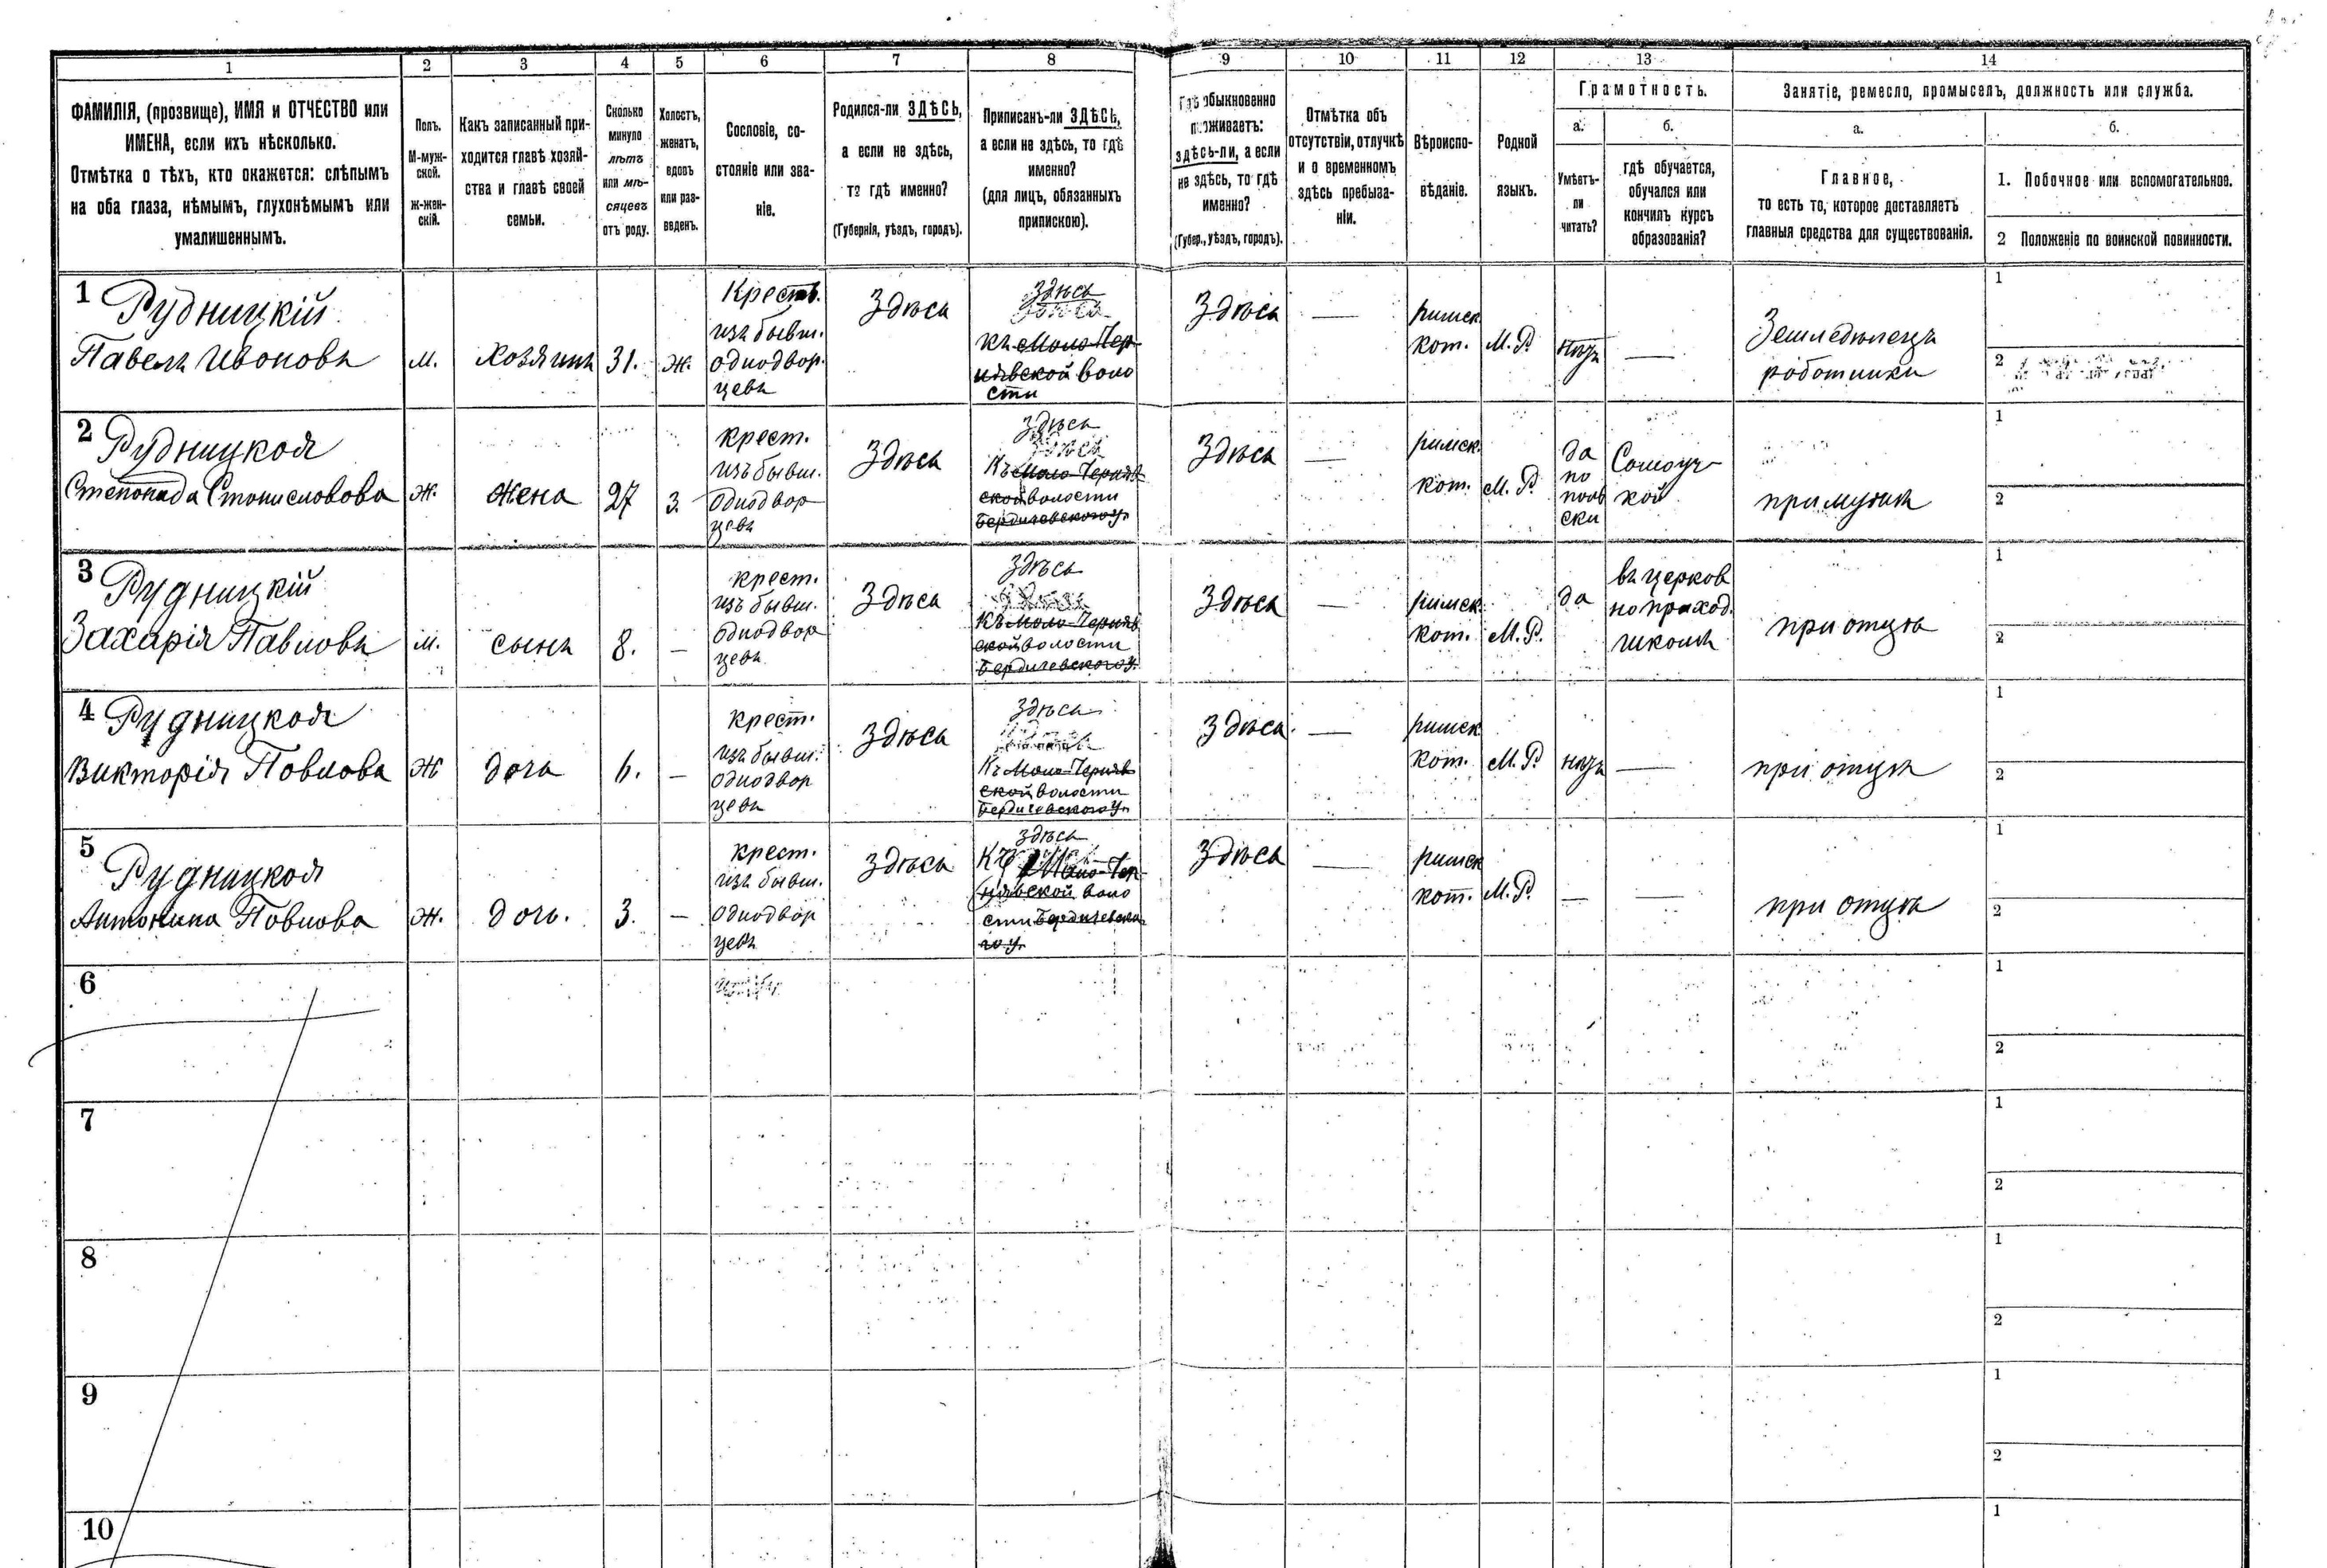 1 2 3 4 5 6 7 8 9 10 11 12 13 14
ФАМИЛІЯ, (прозвище), ИМЯ и ОТЧЕСТВО или
ИМЕНА, если ихъ нѣсколько.
Отмѣтка о тѣхъ, кто окажется: слѣпымъ
на оба глаза, нѣмымъ, глухонѣмымъ или
умалишеннымъ.
Полъ.
М-муж-
ской.
ж-жен-
скій.
Какъ записанный при-
ходится главѣ хозяй-
ства и главѣ своей
семьи.
Сколько
минуло
лѣтъ
или мѣ-
сяцевъ
отъ роду.
Холостъ,
женатъ,
вдовъ
или раз-
веденъ.
Сословіе, со-
стояніе или зва-
ніе.
Родился-ли ЗДѢСЬ,
а если не здѣсь,
то гдѣ именно?
(Губернія, уѣздъ, городъ).
Приписанъ-ли ЗДѢСЬ,
а если не здѣсь, то гдѣ
именно?
(для лицъ, обязанныхъ
припискою).
Гдѣ обыкновенно
проживаетъ:
здѣсь-ли, а если
не здѣсь, то гдѣ
именно?
(Губер., уѣздъ, городъ).
Отмѣтка объ
отсутствіи, отлучкѣ
и о временномъ
здѣсь пребыва-
ніи.
Вѣроиспо-
вѣданіе.
Родной
языкъ.
Грамотность.
а.
Умѣетъ-
ли
читать?
б.
гдѣ обучается,
обучался или
кончилъ курсъ
образованія?
Занятіе, ремесло, промыселъ, должность или служба.
а.
Главное,
то есть то, которое доставляетъ
главныя средства для существованія.
б.
1. Побочное или вспомогательное.
2 Положеніе по воинской повинности.
1 Рудницкій
Павелъ Ивановъ
м.
хозяинъ
31.
ж.
Крестъ.
изъ бывш.
однодвор-
цевъ
Здѣсь
Здѣсь
къ Мало-Чер-
нявской воло
сти
Здѣсь
—
римск.
кат.
М. Р.
нѣтъ
—
Земледѣлецъ
работникъ
1
2
2 Рудницкая
Степанида Станиславова
ж.
жена
27
З.
крест.
изъ бывш.
однодвор
цевъ
Здѣсь
Здѣсь
Къ Мало-Черняв
ской волости
Бердичевского у.
Здѣсь
—
римск.
кат.
М. Р.
да
по
поль
ски
Самоуч-
кой
при мужѣ
1
2
3 Рудницкій
Захарія Павловъ
м.
сынъ
8.
—
крест.
изъ бывш.
однодвор
цевъ
Здѣсь
Здѣсь
Къ Мало-Черняв
ской волости
Бердичевского у.
Здѣсь
—
римск.
кат.
М. Р.
да
въ церков
но приход.
школѣ
при отцѣ
1
2
4 Рудницкая
Викторія Павлова
Ж
дочь
6.
—
крест.
изъ бывш.
однодвор
цевъ
Здѣсь
Здѣсь
Къ Мало-Черняв
ской волости
Бердичевского у.
Здѣсь.
—
римск.
кат.
М. Р.
нѣтъ
—
при отцѣ
1
2
5 Рудницкая
Антонина Павлова
ж.
дочь.
3.
—
крест.
изъ бывш.
однодвор
цевъ
Здѣсь
Здѣсь
Къ Мало-Чер-
нявской воло
сти Бердичевско
го у.
Здѣсь
—
римск
кат.
М. Р.
—
—
при отцѣ
1
2
6
1
2
7
1
2
8
1
2
9
1
2
10
1